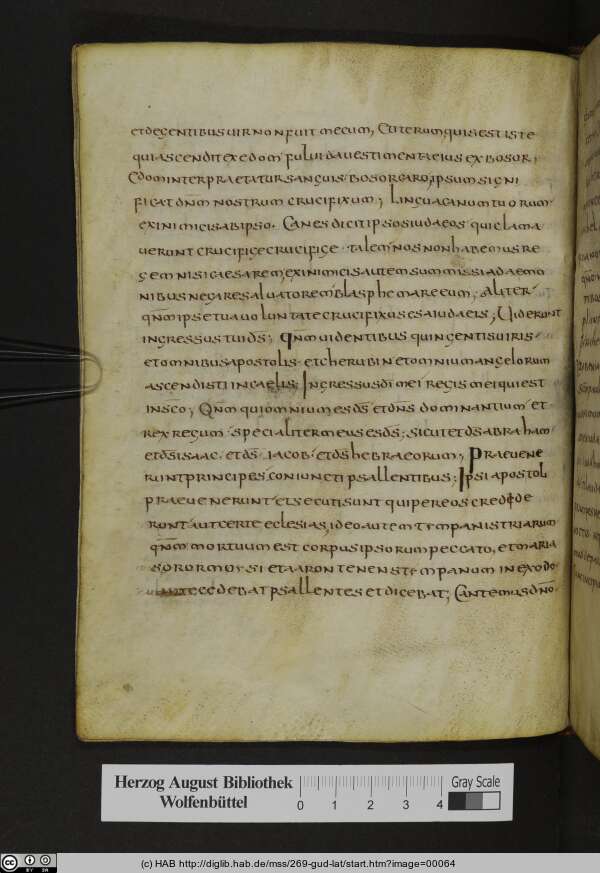 et de gentibus uir non fuit mecum, Et iterum quis est iste
qui ascendit ex edom fulua uestimenta eius ex bosor;
Edom interpraetatur sanguis bosor caro, ipsum signi
ficat dn̄m nostrum crucifixum; lingua canum tuorum
ex inimicis ab ipso. Canes dicit ipsos iudaeos qui clama
uerunt crucifige crucifige. talem nos non habemus re
gem nisi caesarem, ex inimicis autem summissi a daemo
nibus negare saluatorem blasphemare eum; Aliter
qn̄m ipse tua uoluntate crucifixus es a iudaeis; Uiderunt
ingressus tui ds̄; qn̄m uidentibus quingentis uiris
et omnibus apostolis. et cherubin et omnium angelorum
ascendisti in caelis; Ingressus di mei regis mei qui est
in sc̄o; Qn̄m qui omnium es ds̄ et dn̄s dominantium et
rex regum specialiter meus es ds̄; sicut et ds̄ abraham
et ds̄ isaac. et ds̄ iacob. et ds̄ hebraeorum; Praeuene
runt principes coniuncti psallentibus; Ipsi apostol
praeuenerunt et secuti sunt qui per eos credide
runt aut certe eclesias, ideo autem tympanistriarum
qn̄m mortuum est corpus ipsorum peccato, et maria
soror moysi et aaron tenens tympanum in exodo
antecedebat psallentes et dicebat; Cantemus dn̄o
Herzog August Bibliothek
Wolfenbüttel
0 1 2 3 4
Gray Scale
(c) HAB http://diglib.hab.de/mss/269-gud-lat/start.htm?image=00064